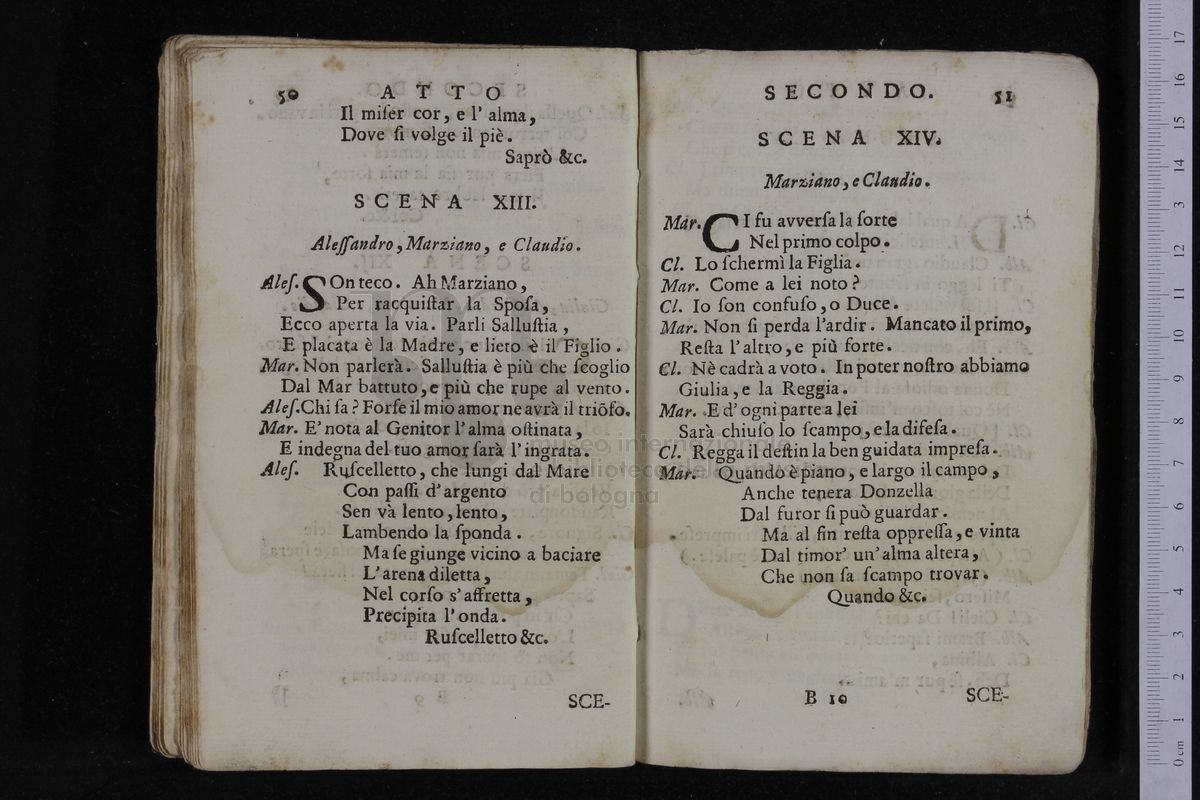 50 ATTO
Il miſer cor, e l' alma,
Dove ſi volge il piè.
Saprò &c.
SCENA XIII.
Aleſſandro, Marziano, e Claudio.
Aleſ. SOn teco. Ah Marziano,
Per racquiſtar la Spoſa,
Ecco aperta la via. Parli Salluſtia,
E placata è la Madre, e lieto è il Figlio.
Mar. Non parlerà. Salluſtia è più che ſcoglio
Dal Mar battuto, e più che rupe al vento.
Aleſ. Chi ſa? Forſe il mio amor ne avrà il triõfo.
Mar. E' nota al Genitor l' alma oſtinata,
E indegna del tuo amor ſarà l' ingrata.
Aleſ. Ruſcelletto, che lungi dal Mare
Con paſſi d' argento
Sen và lento, lento,
Lambendo la ſponda.
Ma ſe giunge vicino a baciare
L' arena diletta,
Nel corſo s' affretta,
Precipita l' onda.
Ruſcelletto &c.
SCE-
SECONDO. 51
SCENA XIV.
Marziano, e Claudio.
Mar. CI fu avverſa la ſorte
Nel primo colpo.
Cl. Lo ſchermì la Figlia.
Mar. Come a lei noto?
Cl. Io ſon confuſo, o Duce.
Mar. Non ſi perda l'ardir. Mancato il primo,
Reſta l'altro, e più forte.
Cl. Nè cadrà a voto. In poter noſtro abbiamo
Giulia, e la Reggia.
Mar. E d' ogni parte a lei
Sarà chiuſo lo ſcampo, e la difeſa.
Cl. Regga il deſtin la ben guidata impreſa.
Mar. Quando è piano, e largo il campo,
Anche tenera Donzella
Dal furor ſi può guardar.
Ma al fin reſta oppreſſa, e vinta
Dal timor' un' alma altera,
Che non ſa ſcampo trovar.
Quando &c.
B 10 SCE-
museo internazionale
e biblioteca della musica
di bologna